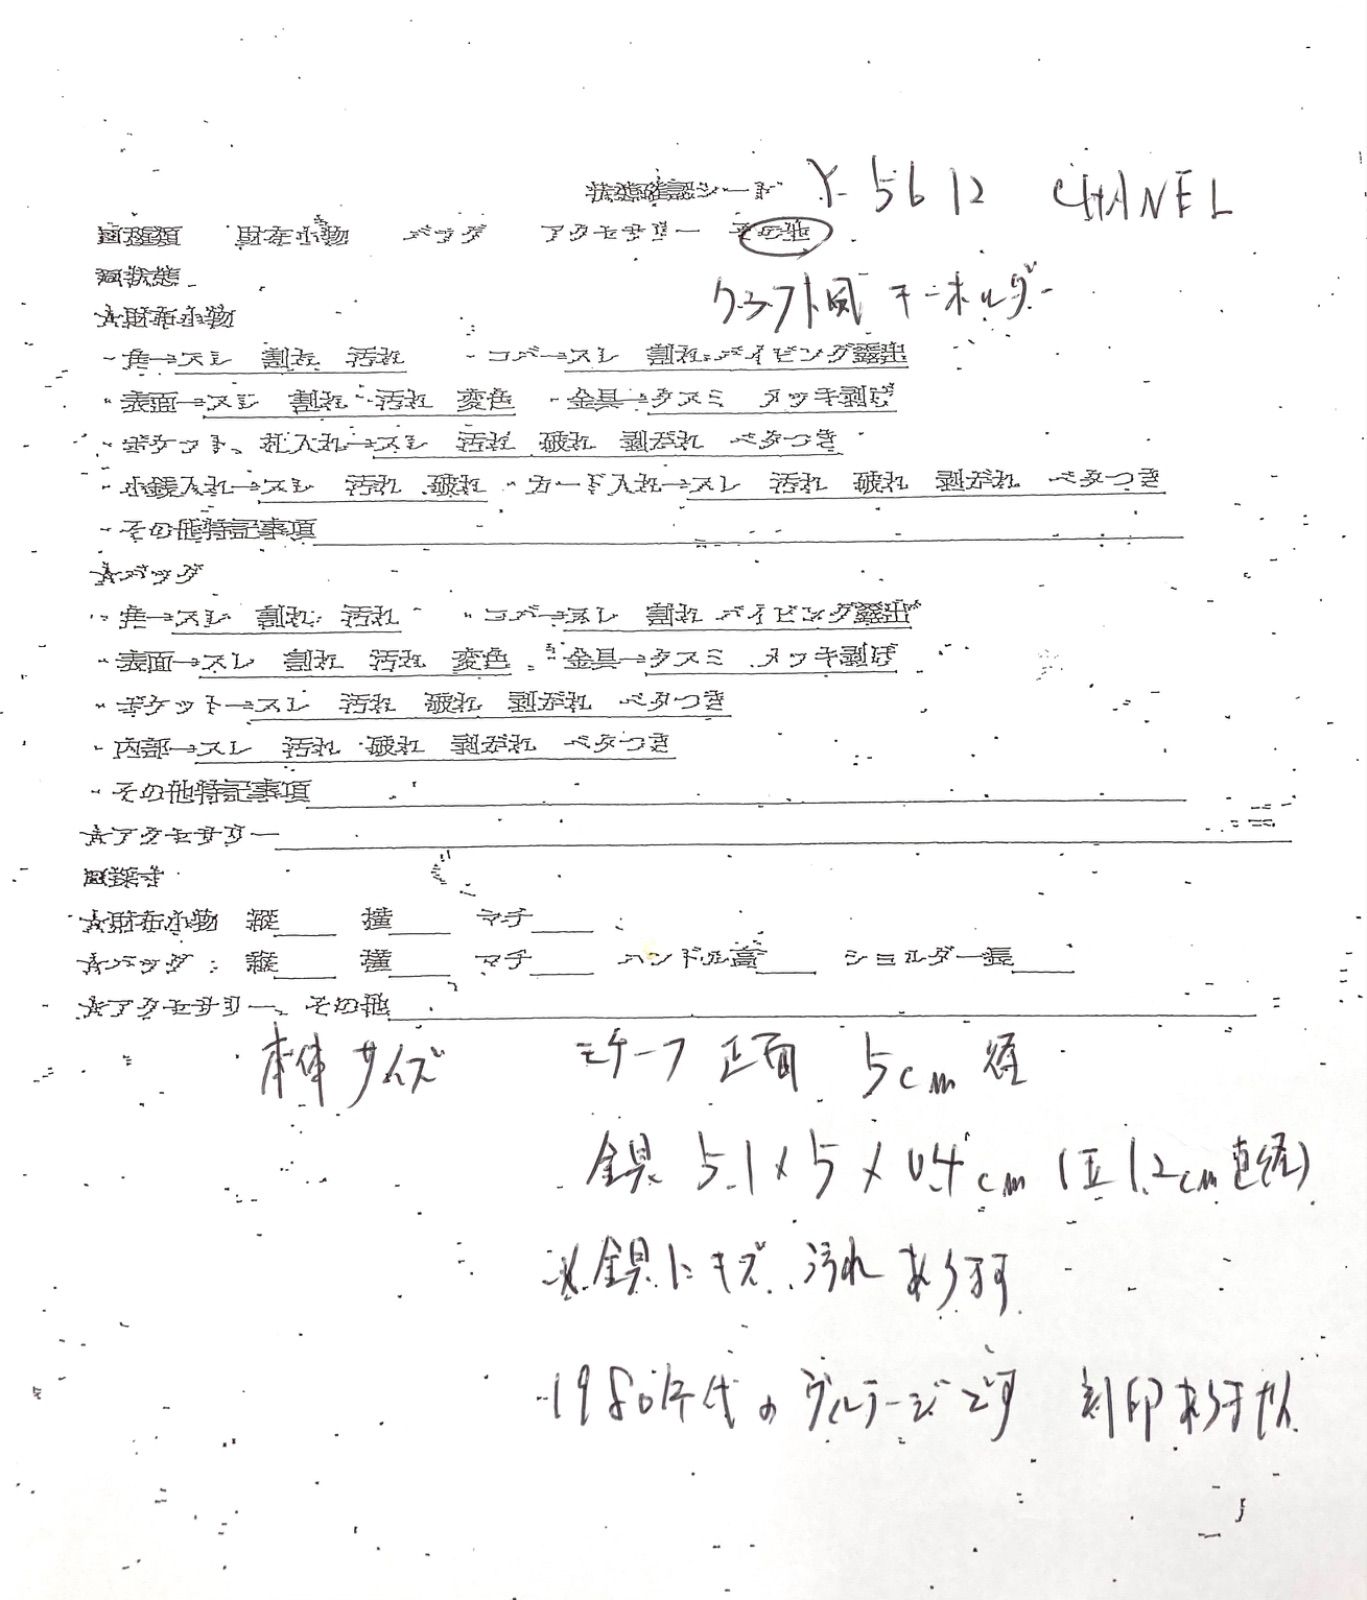 状態確認シート Y-5612 CHANEL
□種類 財布小物 バッグ アクセサリー その他
□状態
クラフト風 キーホルダー
☆財布小物
・角→スレ 割れ 汚れ ・コバ→スレ 割れ パイピング露出
・表面→スレ 割れ 汚れ 変色 ・金具→クスミ メッキ剥げ
・ポケット、札入れ→スレ 汚れ 破れ 剥がれ ベタつき
・小銭入れ→スレ 汚れ 破れ ・カード入れ→スレ 汚れ 破れ 剥がれ ベタつき
・その他特記事項
☆バッグ
・角→スレ 割れ 汚れ ・コバ→スレ 割れ パイピング露出
・表面→スレ 割れ 汚れ 変色 ・金具→クスミ メッキ剥げ
・ポケット→スレ 汚れ 破れ 剥がれ ベタつき
・内部→スレ 汚れ 破れ 剥がれ ベタつき
・その他特記事項
☆アクセサリー
□採寸
☆財布小物 縦 横 マチ
☆バッグ 縦 横 マチ ハンドル高 ショルダー長
☆アクセサリー、その他
本体サイズ モチーフ 正面 5cm 径
金具 5.1×5×0.4cm (玉1.2cm直径)
※金具にキズ、汚れあります
1980年代のヴィンテージです 刻印ありません